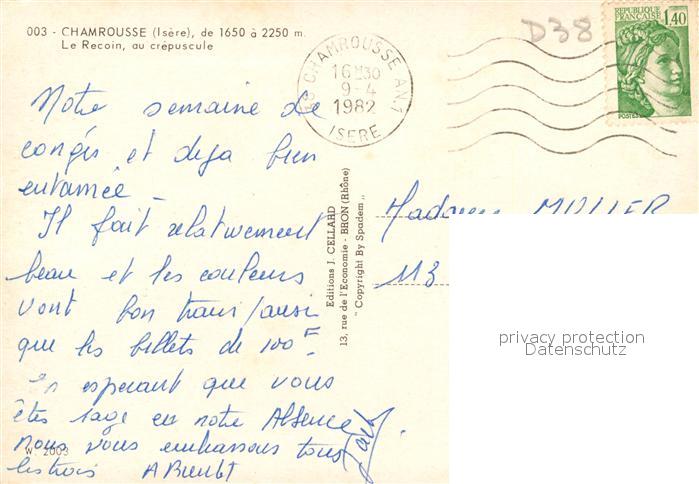 003 - CHAMROUSSE (Isère), de 1650 à 2250 m.
Le Recoin, au crépuscule
D38
REPUBLIQUE FRANÇAISE 1,40
POSTES
38 CHAMROUSSE AN.1
16H30
9-4
1982
ISERE
Notre semaine de
congés et deja bien
entamée -
Il fait relativement
beau et les couleurs
vont bon train/aussi
que les billets de 100F.
En esperant que vous
êtes sage en notre Absence
nous vous embrassons tous
les trois A Bientôt
W 2003
Editions J. CELLARD
13, rue de l'Economie - BRON (Rhône)
" Copyright By Spadem "
Madame MULLER
113
privacy protection
Datenschutz